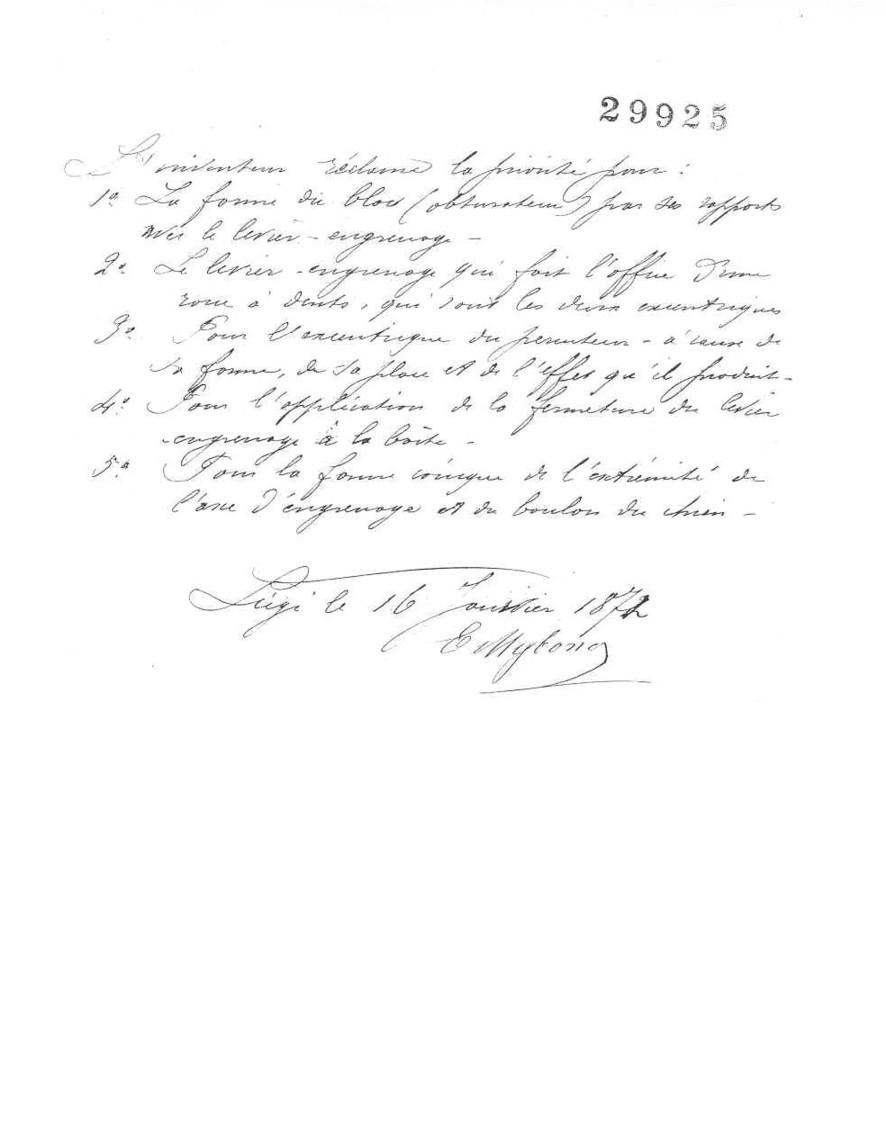 29925
L'inventeur réclame la priorité pour :
1º La forme du bloc (obturateur) par ses rapports
avec le levier-engrenage -
2º Le levier-engrenage qui fait l'office d'une
roue à dents, qui sont les deux excentriques
3º Pour l'excentrique du percuteur - à cause de
sa forme, de sa place et de l'effet qu'il produit -
4º Pour l'application de la fermeture du levier
engrenage à la boîte -
5º Pour la forme conique de l'extrémité de
l'axe d'engrenage et du boulon du chien -
Liège le 16 Janvier 1872